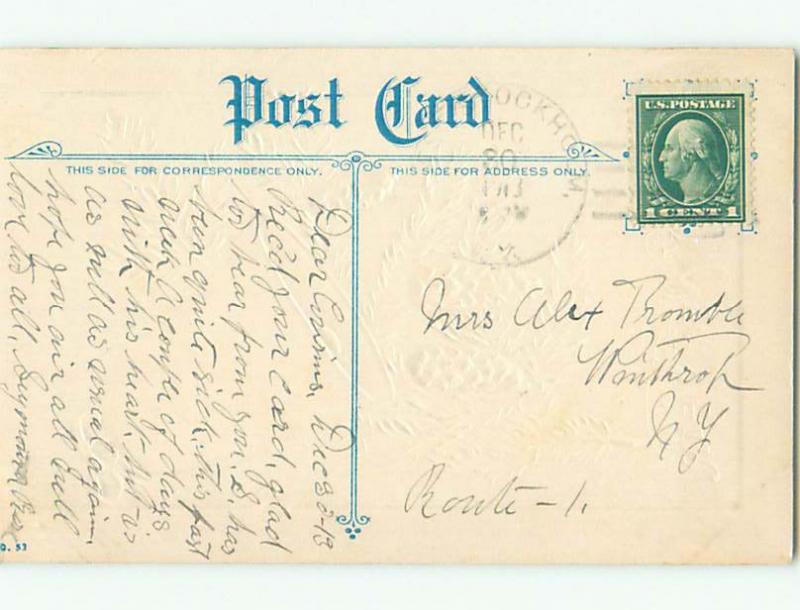 Post Card
THIS SIDE FOR CORRESPONDENCE ONLY.
THIS SIDE FOR ADDRESS ONLY.
Dear Cousins, Dec 30-13
Rec'd your card, glad
to hear from you. S. has
been quite sick, this past
week a couple of days
with his heart, but is
as well as usual again.
hope you are all well
love to all, Seymour
G. 53
STOCKHOLM,
DEC
30
1913
N.Y.
U.S. POSTAGE
1 CENT 1
Mrs Alex Tromble
Winthrop
N Y
Route - 1.